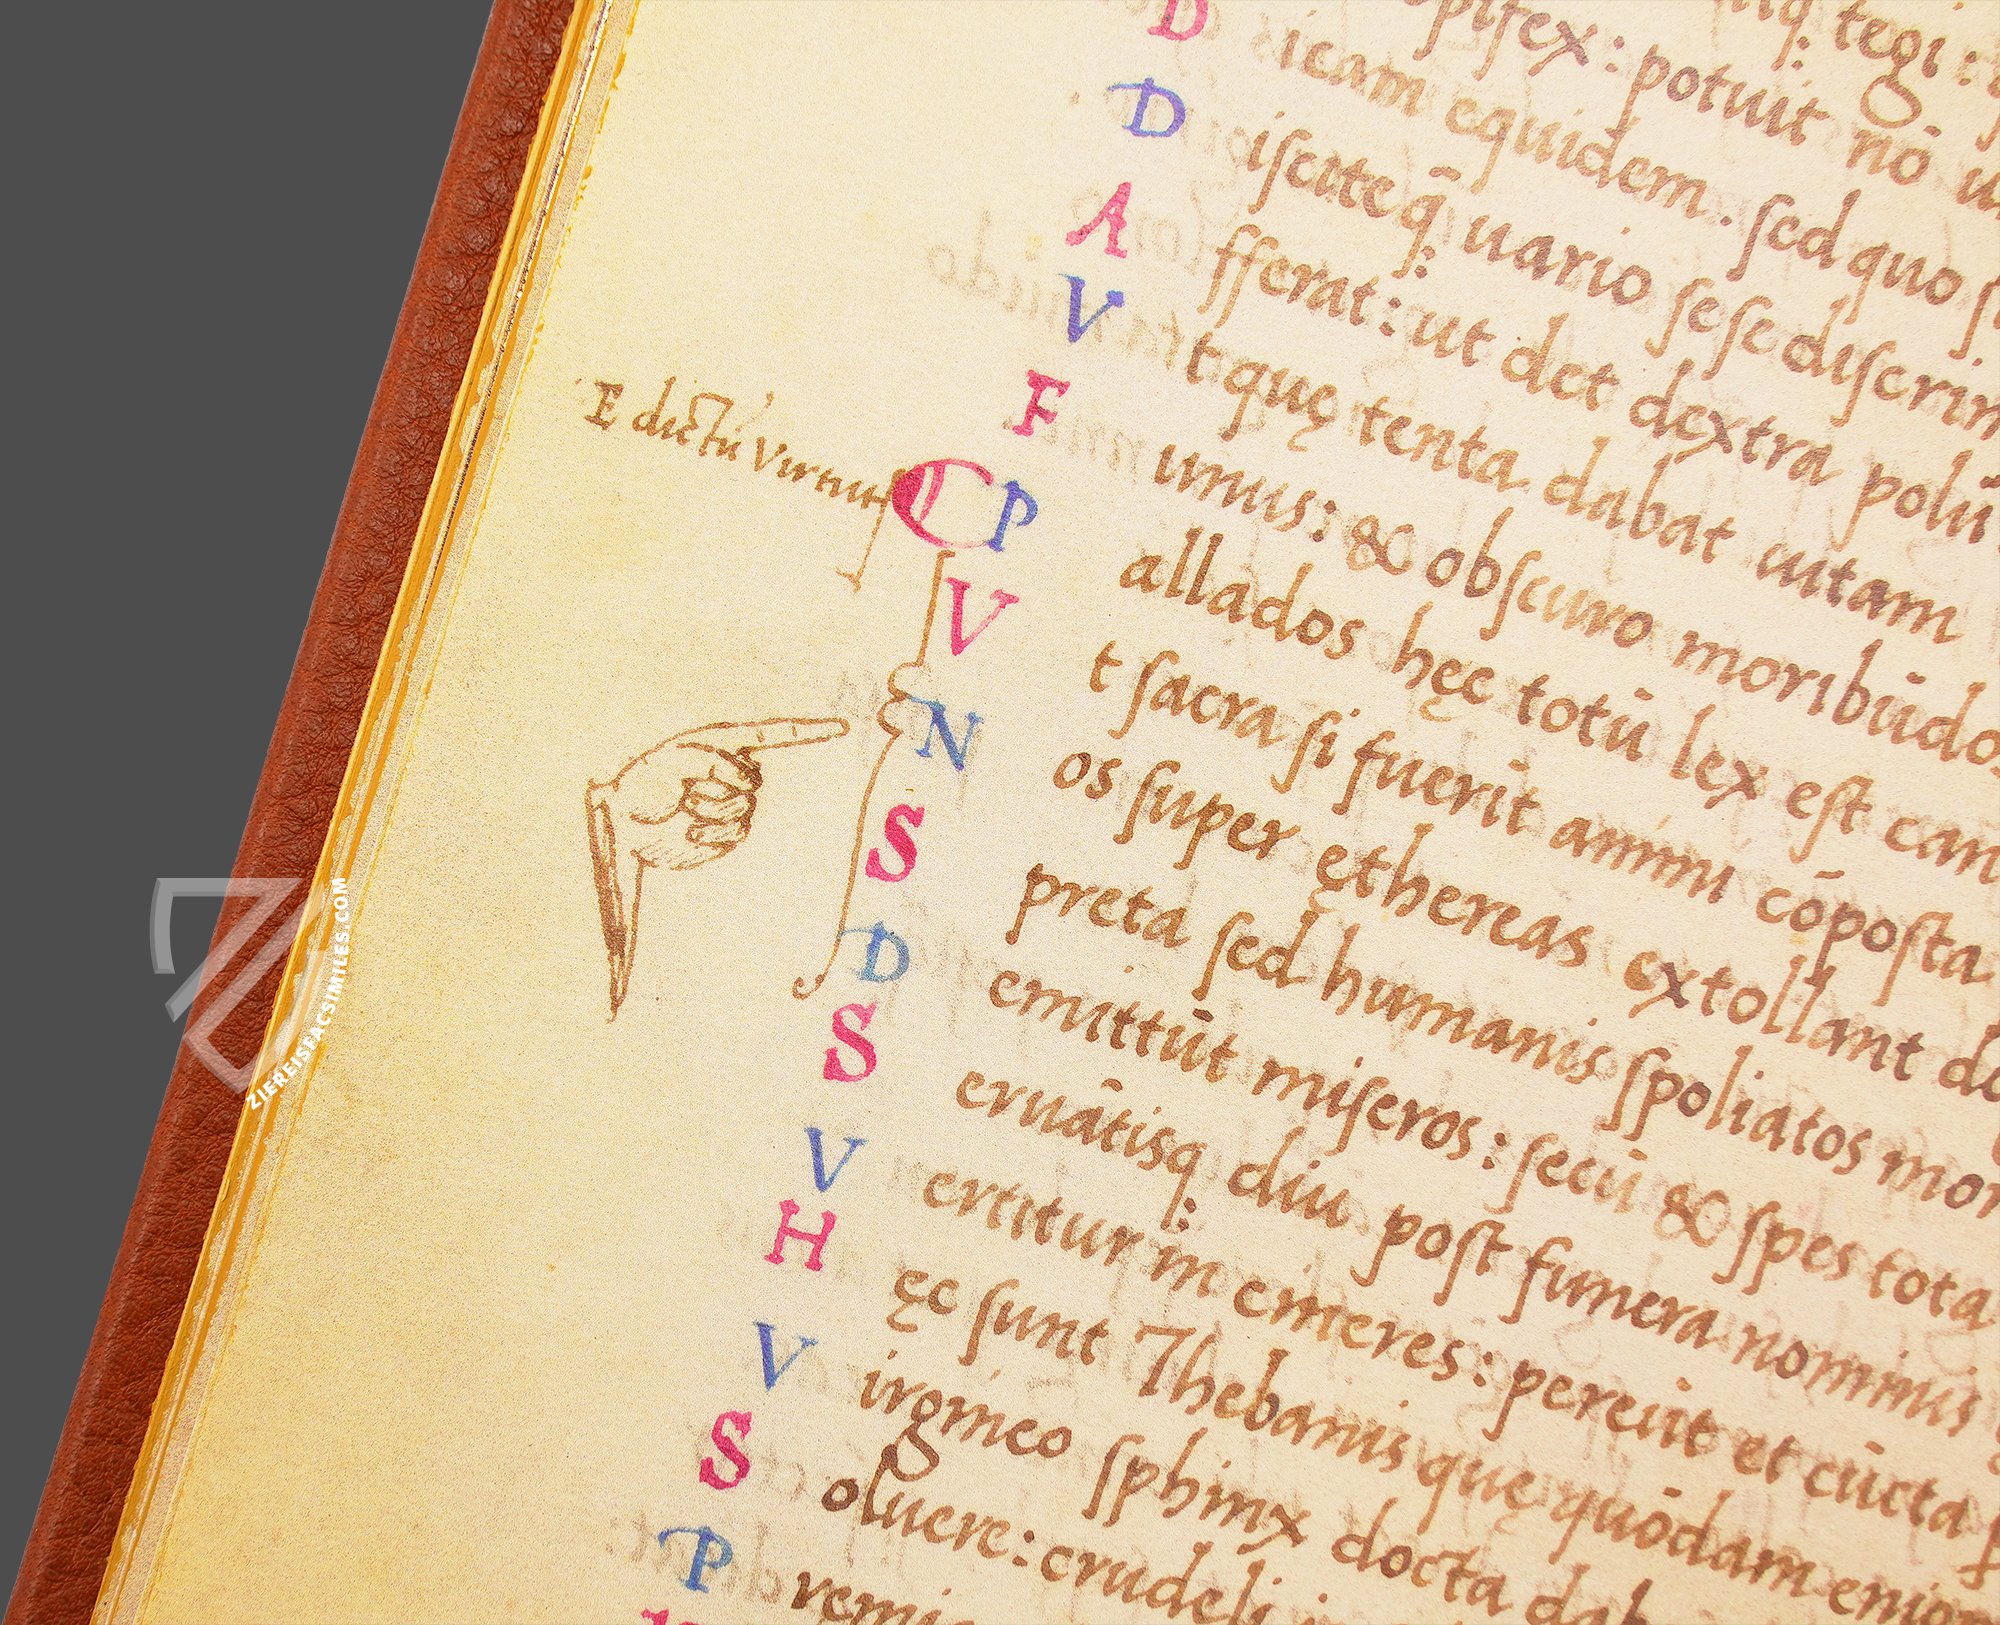 opifex: potuit nō
Dicam equidem. sed quo
Disciteq̄: uario sese discrim
Afferat: ut det dextra polū
Vt quę tenta dabat uitam
Funus: & obscuro moribūdos
Edictū Virtutis
Pallados hęc totū lex est can
Vt sacra si fuerit animi cōposta
Nos super ęthereas extollant
Spreta sed humanis spoliatos mor
Demittūt miseros: secū & spes tota
Seruātisq: diu post funera nominis
Vertitur in cineres: pereūt et cūcta
Hęc sunt Thebanis quę quōdam enig
Virgineo sphinx docta dab
Soluere: crudeli
Premi
ZIEREISFACSIMILES.COM